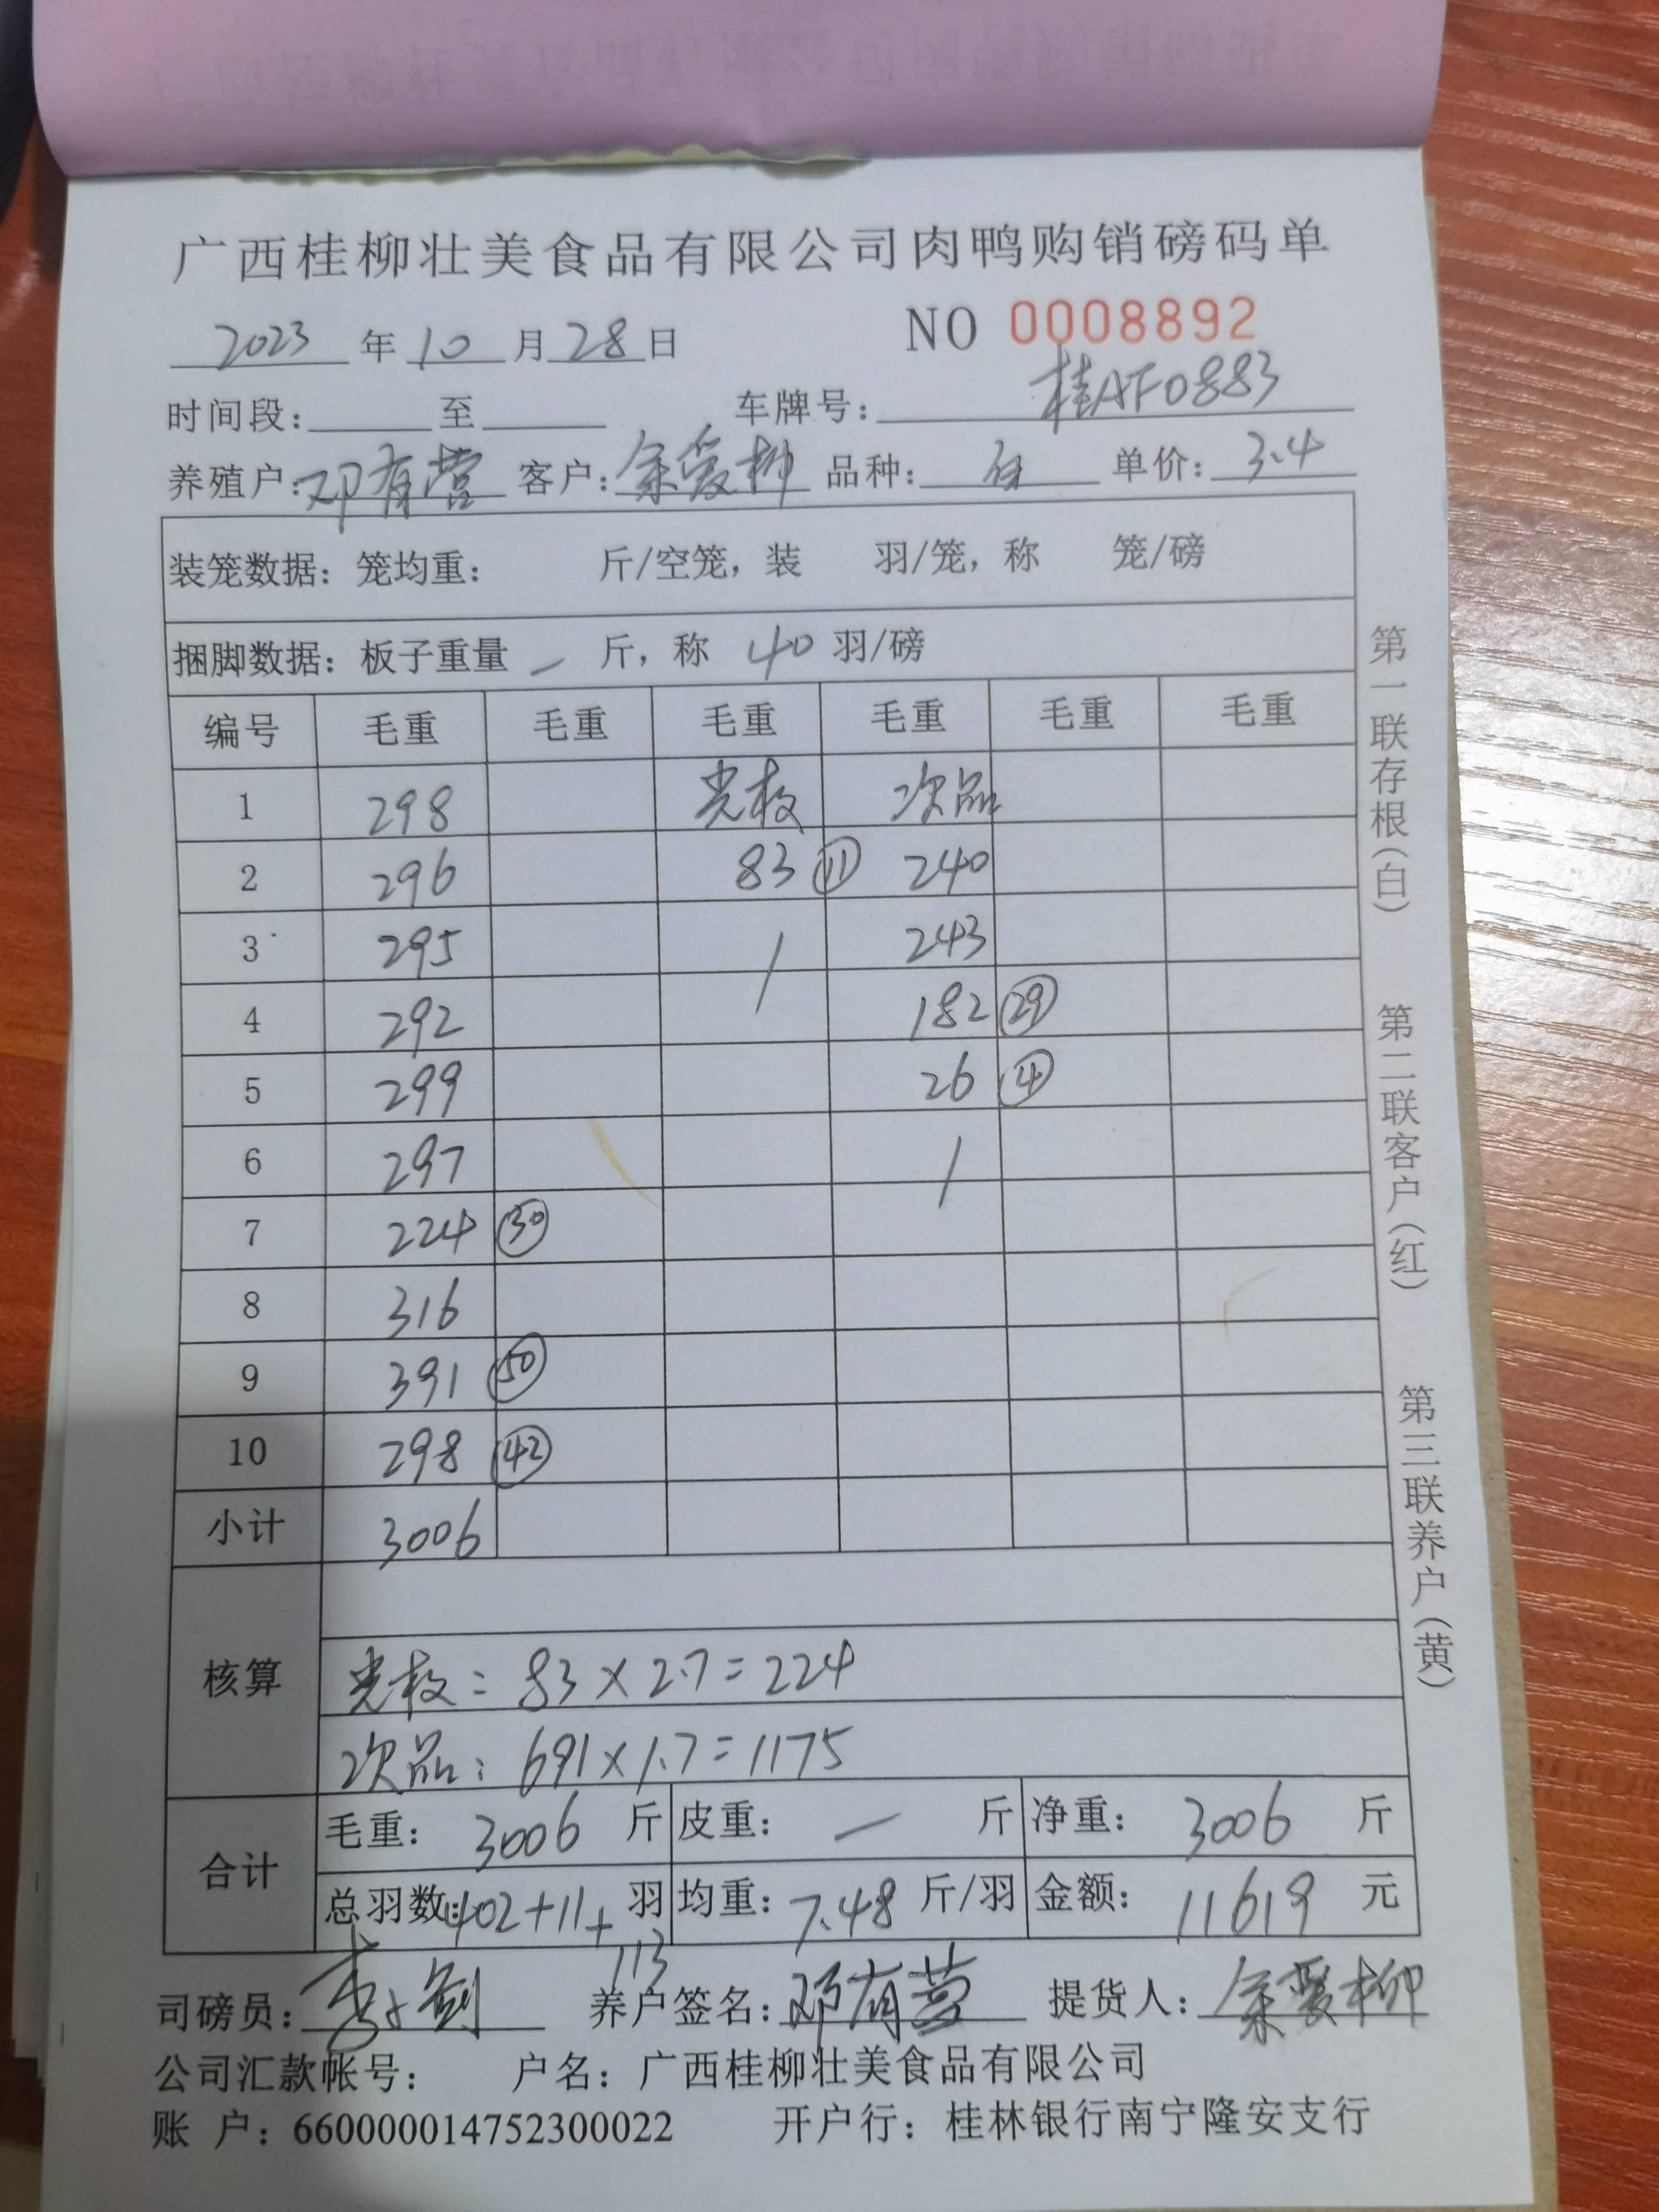 广西桂柳壮美食品有限公司肉鸭购销磅码单
2023 年 10 月 28 日 NO 0008892
时间段: 至 车牌号: 桂AF0883
养殖户: 邓有营 客户: 余爱柳 品种: 单价: 3.4
装笼数据: 笼均重: 斤/空笼, 装 羽/笼, 称 笼/磅
捆脚数据: 板子重量 — 斤, 称 40 羽/磅
编号 毛重 毛重 毛重 毛重 毛重 毛重
1 298 光枚 次品
2 296 83 ⑪ 240
3 295 / 243
4 292 182 ㉙
5 299 26 ④
6 297 /
7 224 ㉚
8 316
9 391 ㊿
10 298 ㊷
小计 3006
核算
光枚: 83×2.7=224
次品: 691×1.7=1175
合计
毛重: 3006 斤 皮重: — 斤 净重: 3006 斤
总羽数: 402+11+113 羽 均重: 7.48 斤/羽 金额: 11619 元
司磅员: 养户签名: 邓有营 提货人: 余爱柳
公司汇款帐号: 户名: 广西桂柳壮美食品有限公司
账 户: 660000014752300022 开户行: 桂林银行南宁隆安支行
第一联存根(白)
第二联客户(红)
第三联养户(黄)